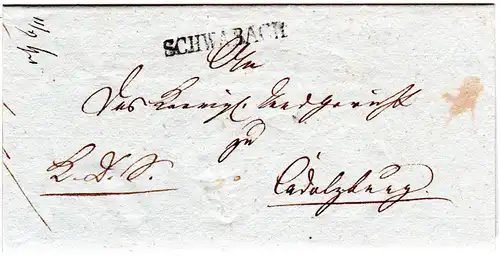 SCHWABACH
An
das Königl. Landgericht
zu
K. D. S.
Cadolzburg.